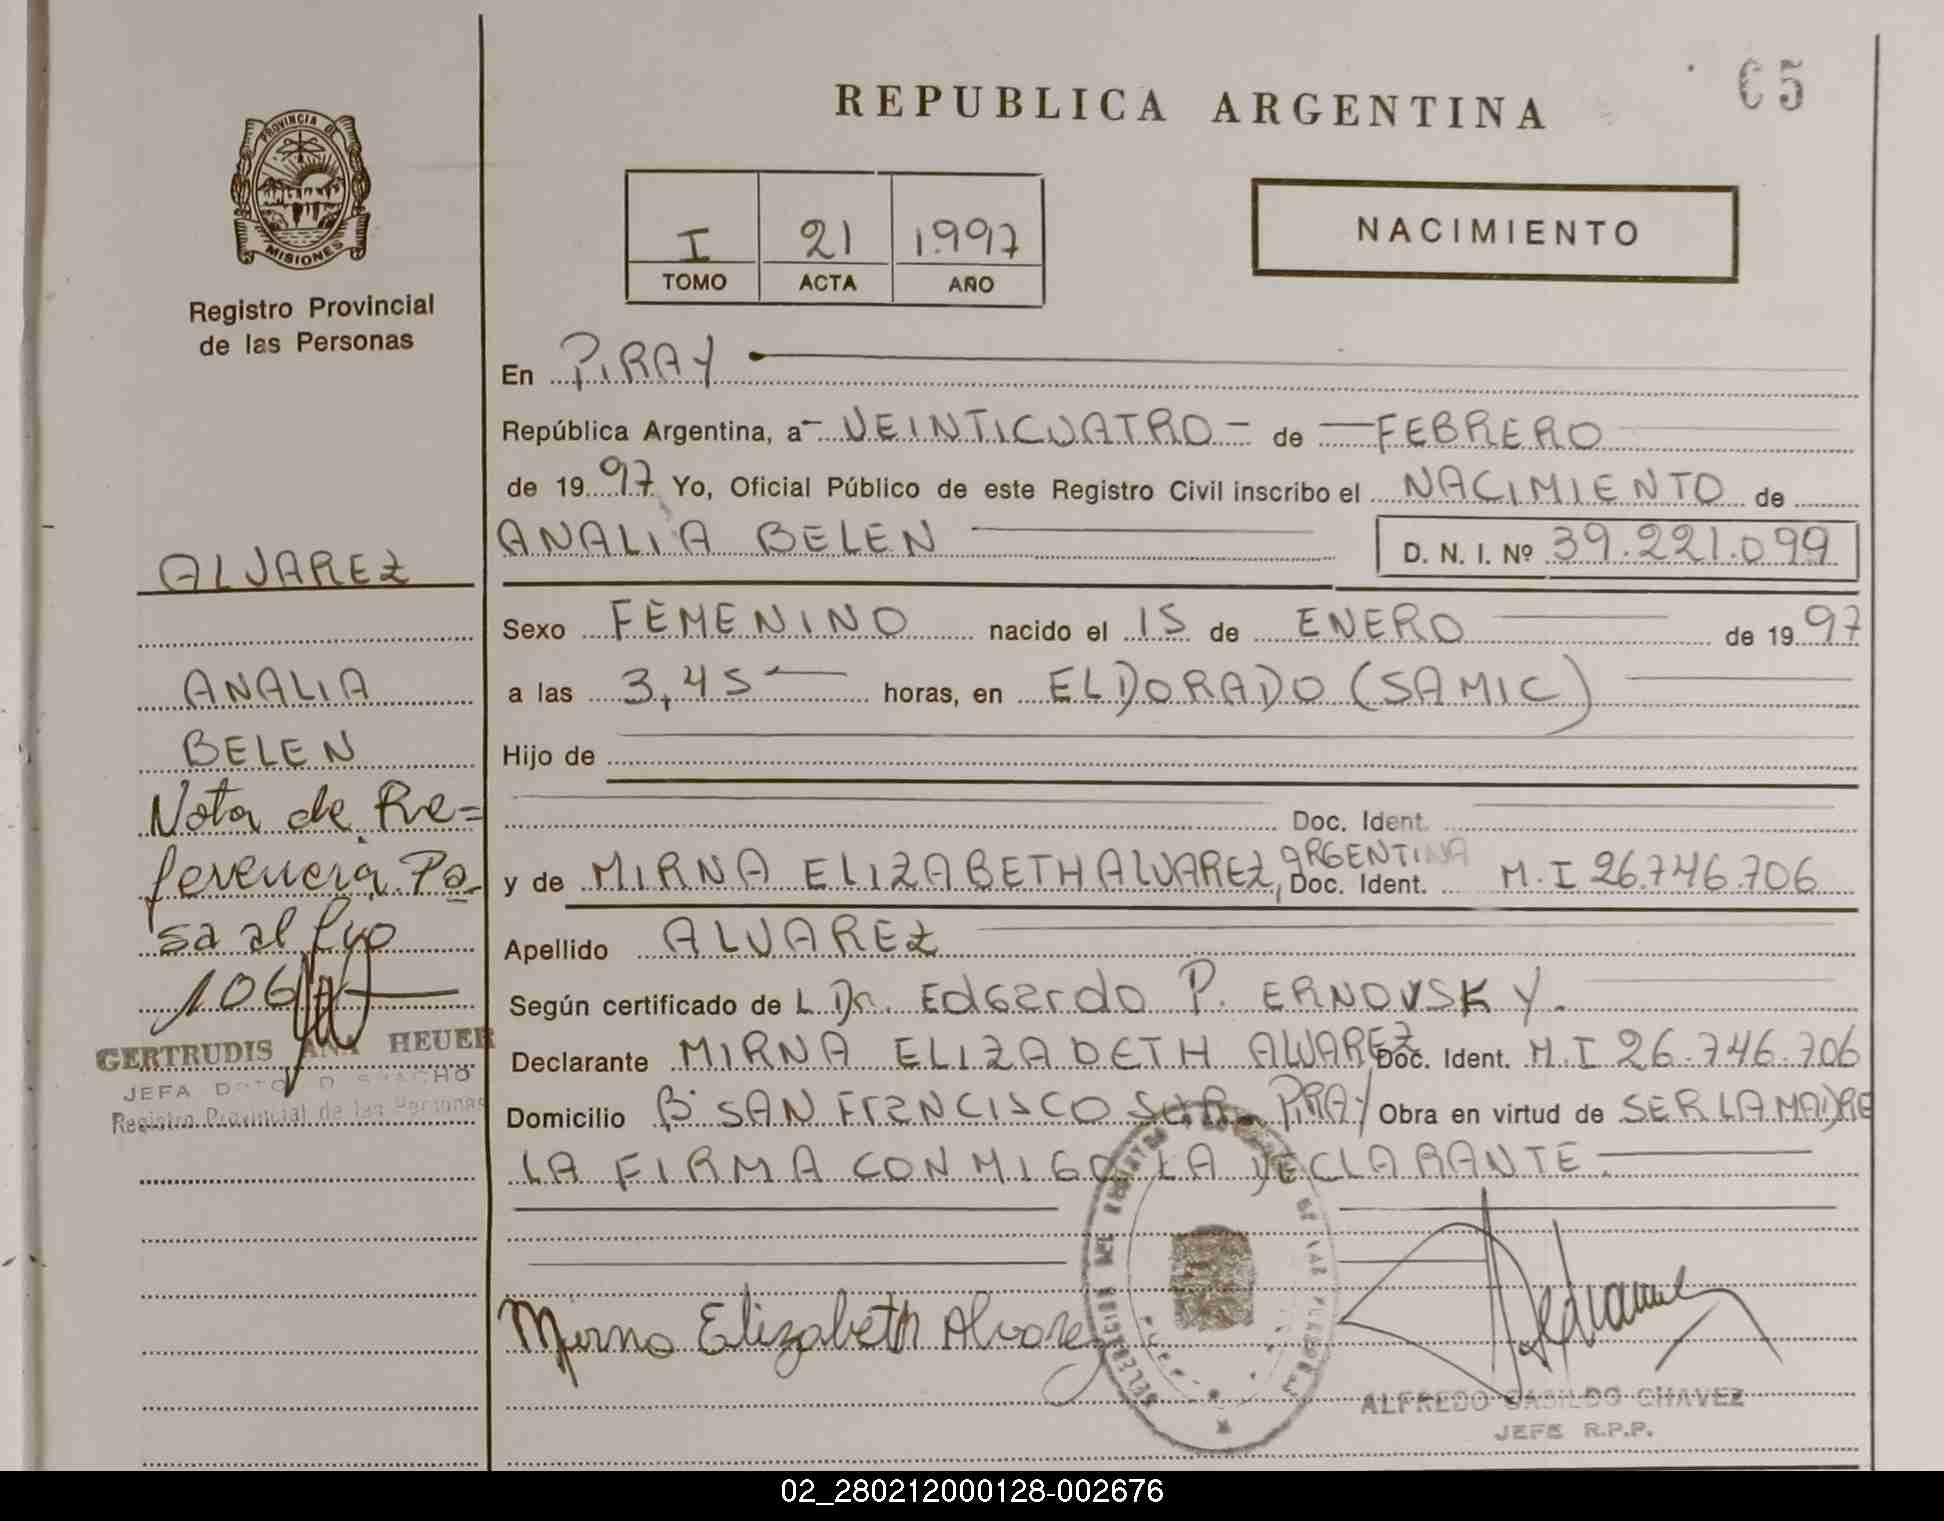 REPUBLICA ARGENTINA
65
PROVINCIA DE
MISIONES
Registro Provincial
de las Personas
I 21 1997
TOMO ACTA AÑO
NACIMIENTO
En PIRAY
República Argentina, a VEINTICUATRO de FEBRERO
de 1997 Yo, Oficial Público de este Registro Civil inscribo el NACIMIENTO de
ANALIA BELEN D. N. I. Nº 39.221.099
Sexo FEMENINO nacido el 15 de ENERO de 1997
a las 3,45 horas, en ELDORADO (SAMIC)
Hijo de
Doc. Ident.
y de MIRNA ELIZABETH ALVAREZ, ARGENTINA Doc. Ident. M.I 26.746.706
Apellido ALVAREZ
Según certificado de L Dr. Edgardo P. ERNOVSKY.
Declarante MIRNA ELIZABETH ALVAREZ Doc. Ident. M.I 26.746.706
Domicilio Bº SAN FRANCISCO SUR - PIRAY Obra en virtud de SER LA MADRE
LA FIRMA CONMIGO LA DECLARANTE.
Mirna Elizabeth Alvarez
ALFREDO BASILDO CHAVEZ
JEFE R.P.P.
ALVAREZ
ANALIA
BELEN
Nota de Re=
ferencia Pa-
sa al Fyo
106
GERTRUDIS ANA HEUER
JEFA
Registro Provincial de las Personas
02_280212000128-002676